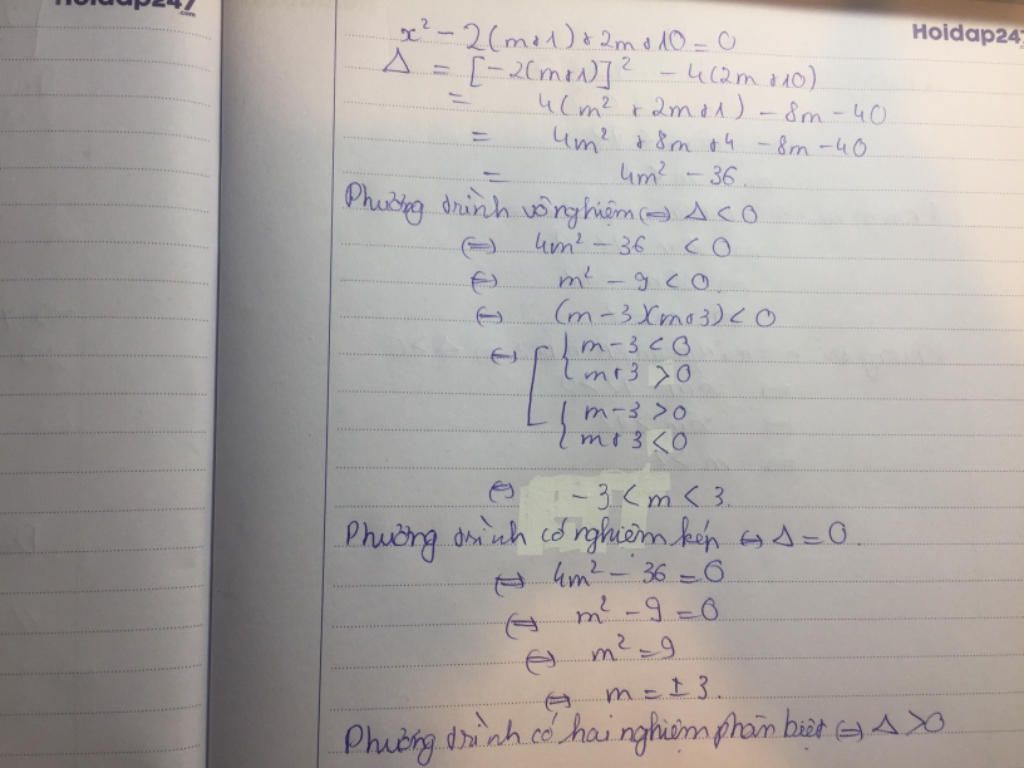 Hoidap247
.com
Hoidap247
x² - 2(m+1) + 2m+10 = 0
Δ = [-2(m+1)]² - 4(2m+10)
= 4(m² + 2m+1) - 8m - 40
= 4m² + 8m + 4 - 8m - 40
= 4m² - 36.
Phương trình vô nghiệm ⇔ Δ < 0
⇔ 4m² - 36 < 0
⇔ m² - 9 < 0.
⇔ (m-3)(m+3) < 0
⇔ [ { m-3 < 0
m+3 > 0
{ m-3 > 0
m+3 < 0
⇔ -3 < m < 3.
Phương trình có nghiệm kép ⇔ Δ = 0.
⇔ 4m² - 36 = 0
⇔ m² - 9 = 0
⇔ m² = 9
⇔ m = ± 3.
Phương trình có hai nghiệm phân biệt ⇔ Δ > 0